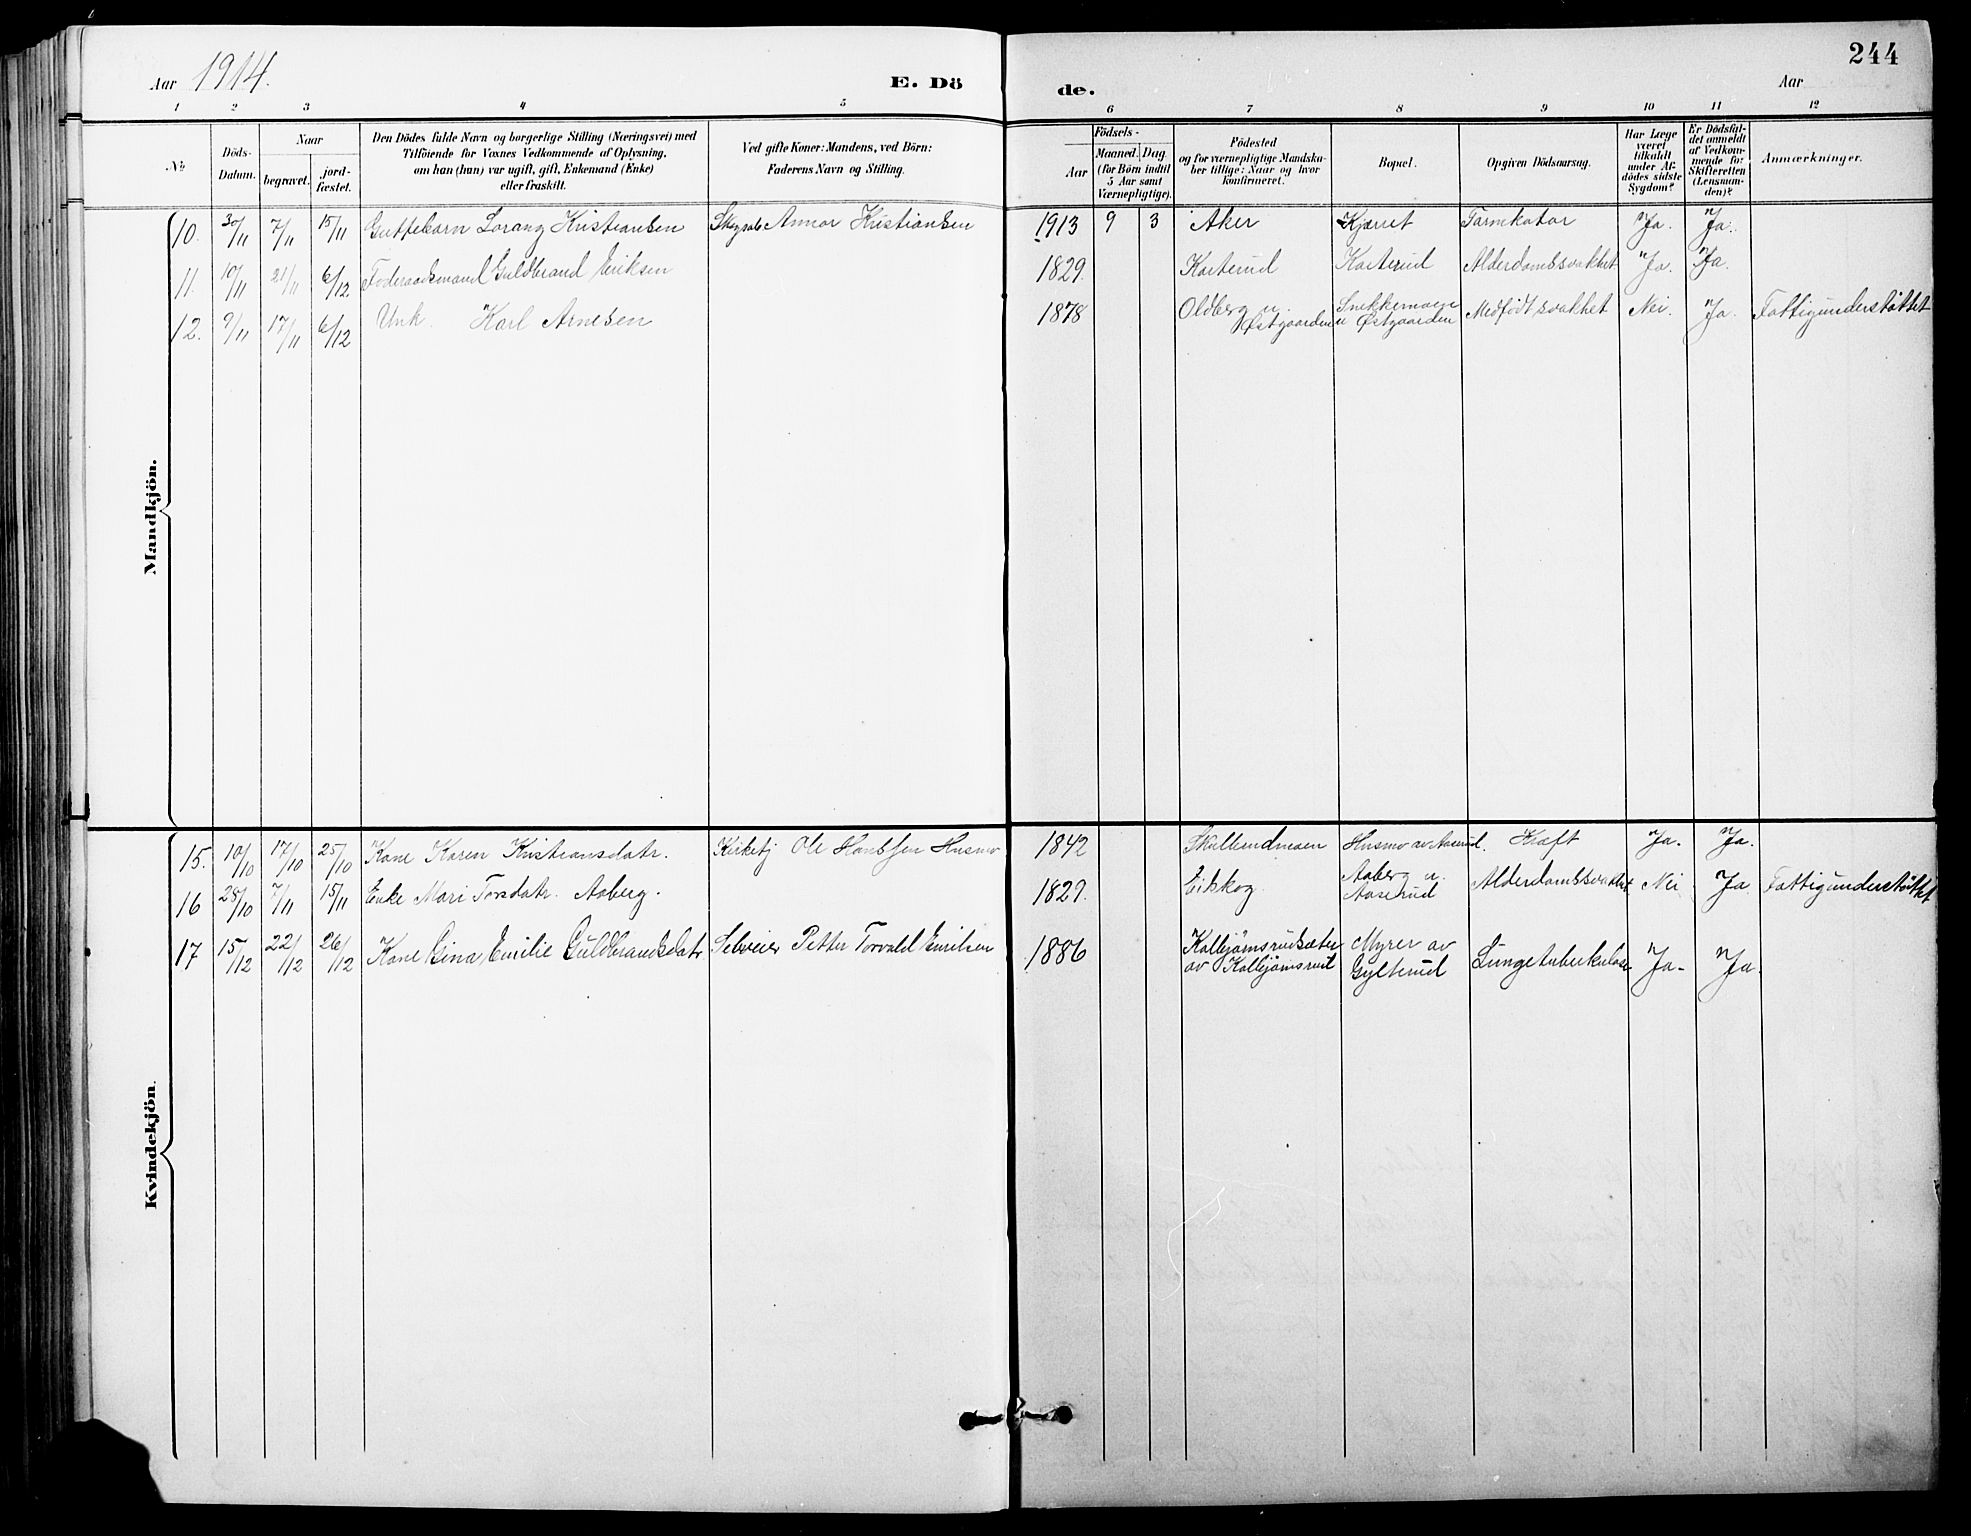 244
Aar 1914.
E. Dö de.
Aar
1 2 3 4 5 6 7 8 9 10 11 12
No
Döds-Datum.
Naar
begravet.
jord-fæstet.
Den Dödes fulde Navn og borgerlige Stilling (Næringsvei) med
Tilföiende for Voxnes Vedkommende af Oplysning,
om han (hun) var ugift, gift, Enkemand (Enke)
eller fraskilt.
Ved gifte Koner: Mandens, ved Börn:
Faderens Navn og Stilling.
Födsels-
Aar
Maaned. Dag.
(for Börn indtil
5 Aar samt
Værnepligtige).
Födested
og for værnepligtige Mandska-
ber tillige: Naar og hvor
konfirmeret.
Bopæl.
Opgiven Dödsaarsag.
Har Læge
været
tilkaldt
under Af-
dödes sidste
Sygdom?
Er Dödsfal-
det anmeldt
af Vedkom-
mende for
Skifteretten
(Lensman-
den)?
Anmærkninger.
Mandkjön.
10. 30/11 7/11 15/11 Guttebarn Lorang Kristiansen Annar Kristiansen 1913 9 3 Aker Kjærret Tarmkatar Ja. Ja.
11. 10/11 21/11 6/12 Föderaadsmand Guldbrand Eriksen 1829. Karterud Karterud Alderdomssvakhet Ja. Ja.
12. 9/11 17/11 6/12 Unk. Karl Arnesen 1878 Oldberg u. Østgaarden Snekkermoen u Østgaarden Medfödt svakhet Nei. Ja. Fattigunderstöttet
Kvindekjön.
15. 10/10 17/10 25/10 Kone Karen Kristiansdatr. Kirketj Ole Hanssen Husmo 1842 Skullerudmoen Husmo av Aaserud. Kræft Ja. Ja.
16 28/10 7/11 15/11 Enke Mari Torsdatr. Aaberg. 1829. Eidskog. Aaberg u. Aaserud Alderdomssvakhet Nei Ja Fattigunderstöttet
17 15/12 22/12 26/12 Kone Gina Emilie Guldbrandsdatr Selveier Petter Torvald Emilsen 1886 Kolbjörnsrudsæter av Kolbjörnsrud Myrer av Gylterud Lungetuberkulose Ja. Ja.